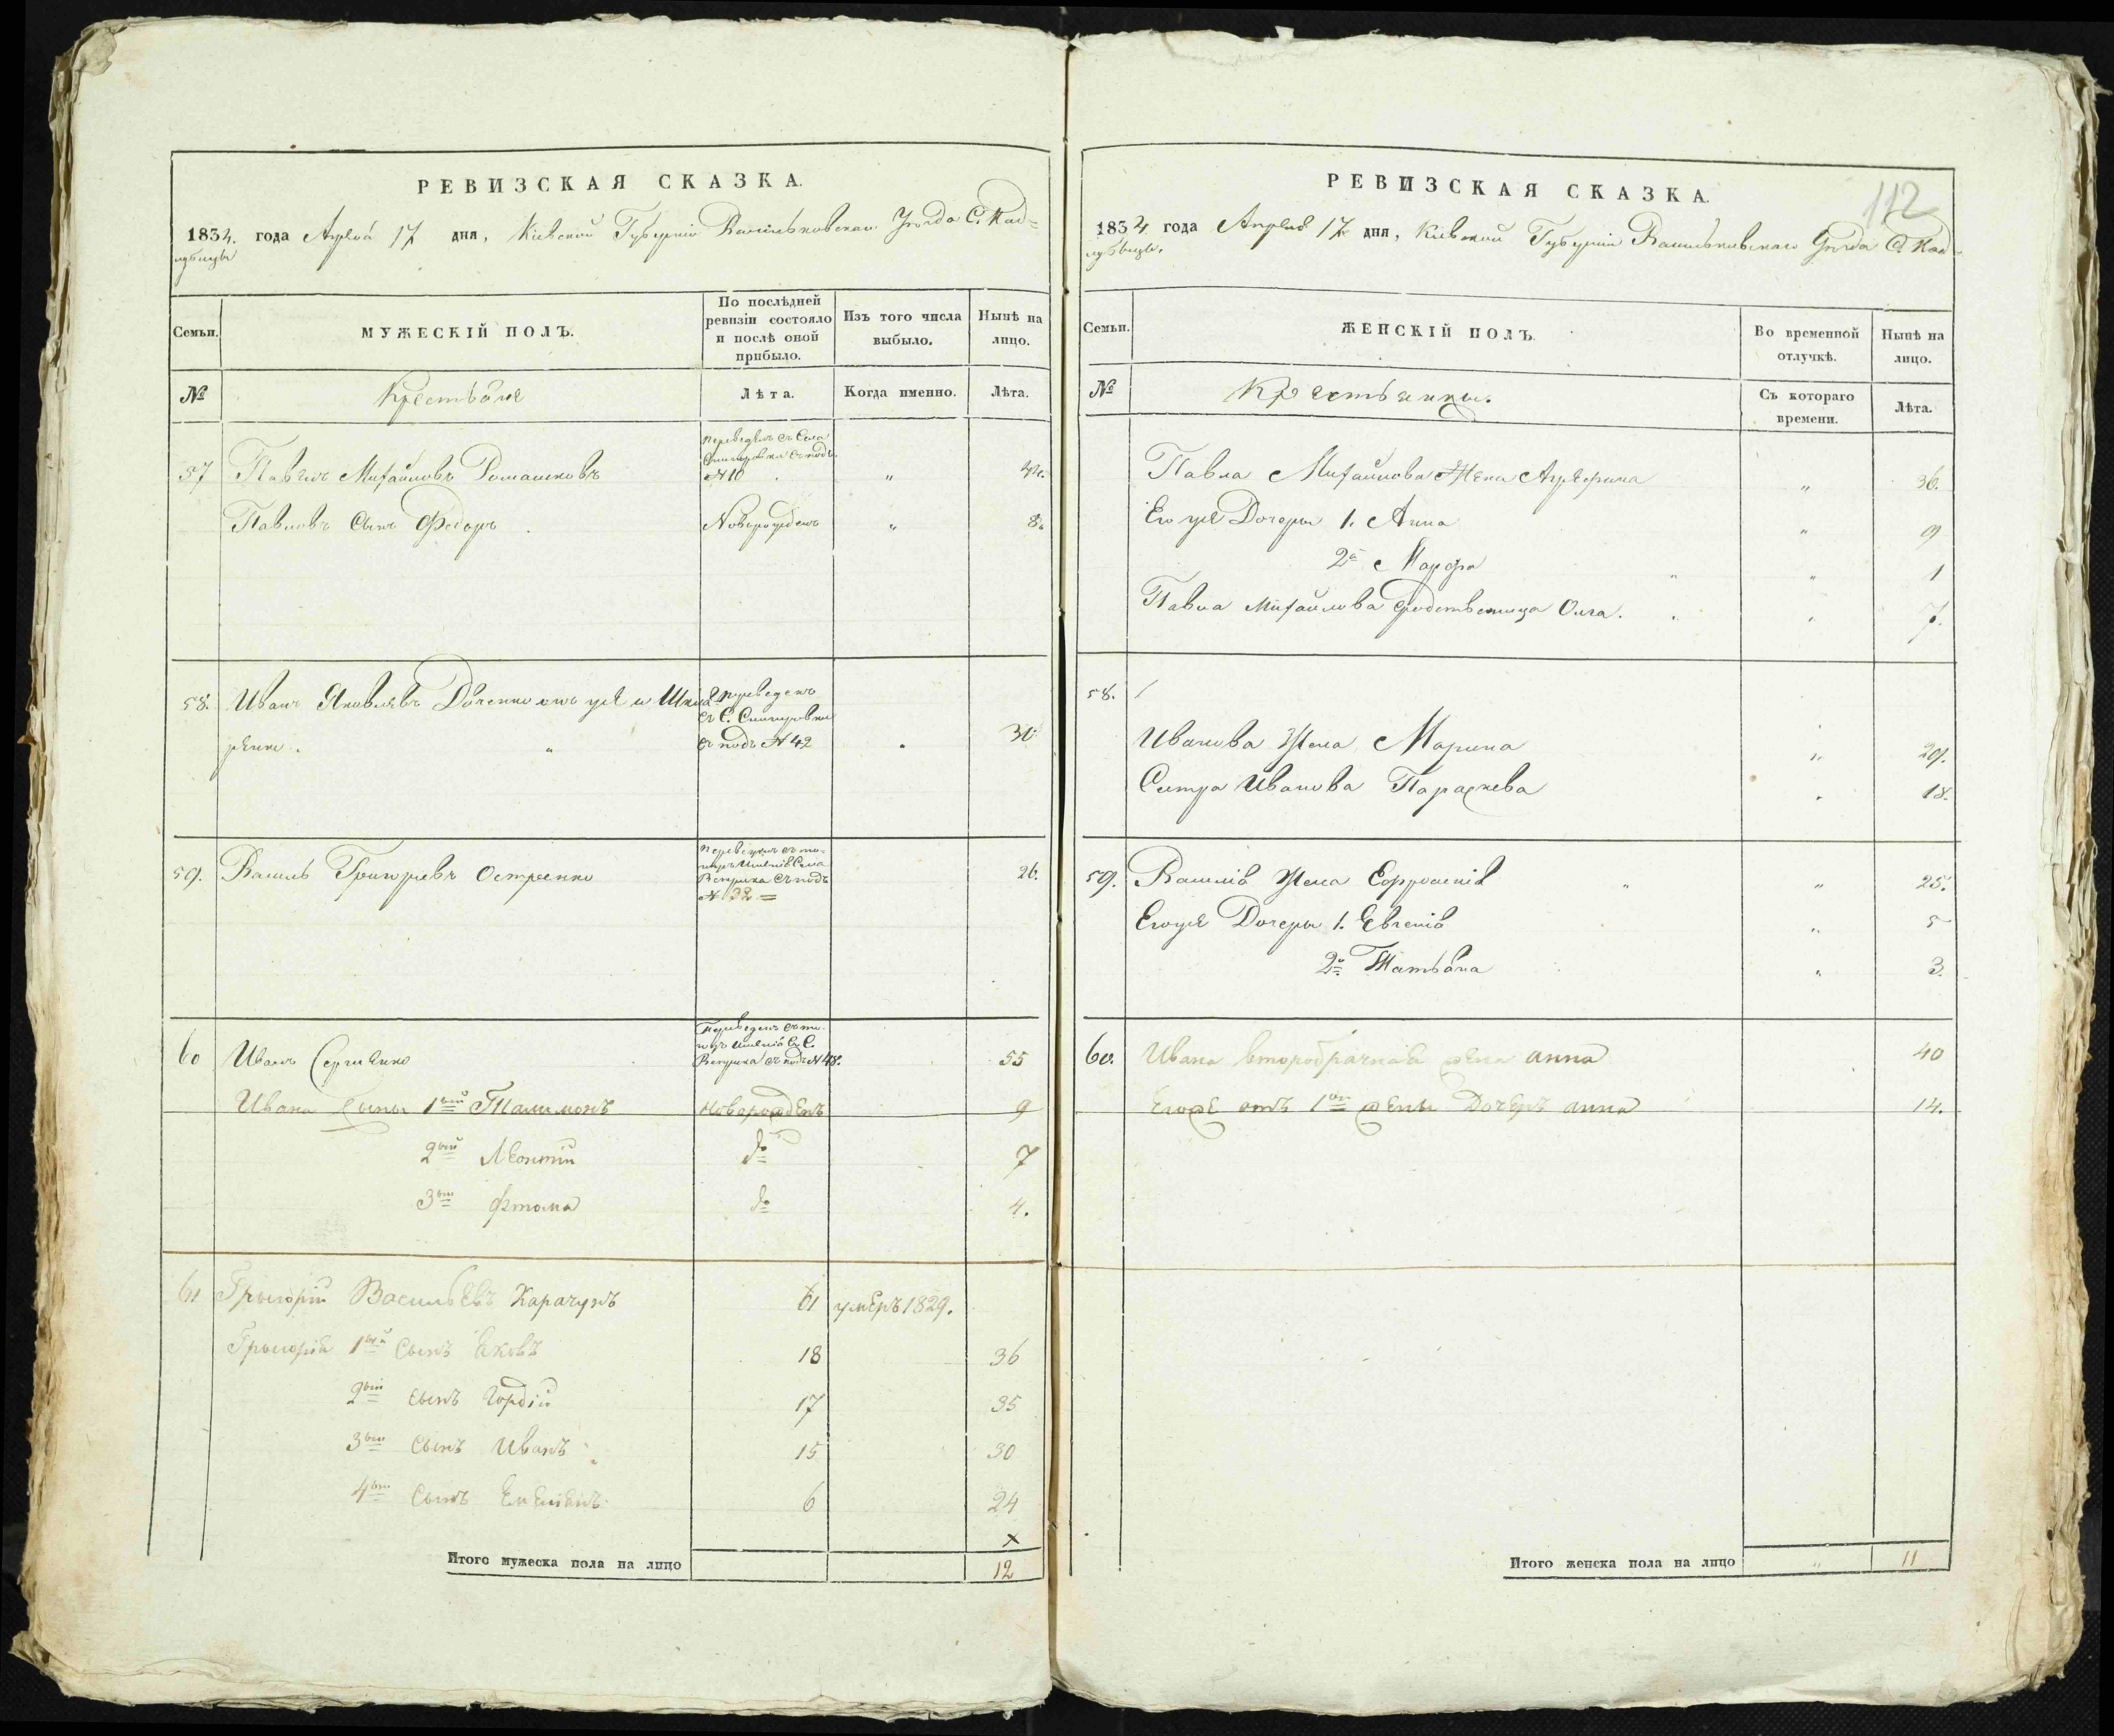 РЕВИЗСКАЯ СКАЗКА.
1834. года Апреля 17 дня, Кіевской Губерніи Васильковскаго Уезда С. Кад=
лубицы
Семьи.
МУЖЕСКІЙ ПОЛЪ.
По послѣдней ревизіи состояло и послѣ оной прибыло.
Изъ того числа выбыло.
Нынѣ на лицо.
№
Крестьяне
Лѣта.
Когда именно.
Лѣта.
переведенъ съ Села
съ подъ
57 Павелъ Михайловъ Ромашковъ №10 "
Павловъ Сынъ Федоръ Новорожденъ " 8.
58. Иванъ Яковлевъ онъ же и переведенъ
съ С.
съ подъ №42 30
59. Василь Григорьевъ Остренко 26.
съ подъ
№ 32 =
60 Иванъ Сергіенко съ подъ №48. 55
Ивана сыны 1вый Талимонъ новорожденъ 9
2вый Леонтій до 7
3вый Фтома до 4.
61 Грыгорій Васильевъ Карачунъ 61 умеръ 1829.
Грыгорія 1вый Сынъ Яковъ 18 36
2вый сынъ Гордій 17 35
3вый сынъ Иванъ 15 30
4вый Сынъ Емелянъ 6 24
х
Итого мужеска пола на лицо 12
112
РЕВИЗСКАЯ СКАЗКА.
1834 года Апреля 17 дня, Кіевской Губерніи Васильковскаго Уезда С. Кад=
лубицы.
Семьи.
ЖЕНСКІЙ ПОЛЪ.
Во временной отлучкѣ.
Нынѣ на лицо.
№
Крестьянки.
Съ котораго времени.
Лѣта.
Павла Михайлова Жена " 36.
Его же Дочери 1. Анна " 9
2я Марфа " 1
Павла Михайлова сродственница Олга. " 7.
58.
Иванова Жена Марина " 29.
Систра Иванова Параскева " 18.
59. Василія Жена Ефросинія " 25.
Егоже Дочери 1. Евгенія " 5
2я Татьяна " 3.
60. Ивана второбрачная жена анна 40
Егоже отъ 1вой жены Дочеръ анна 14.
Итого женска пола на лицо " 11